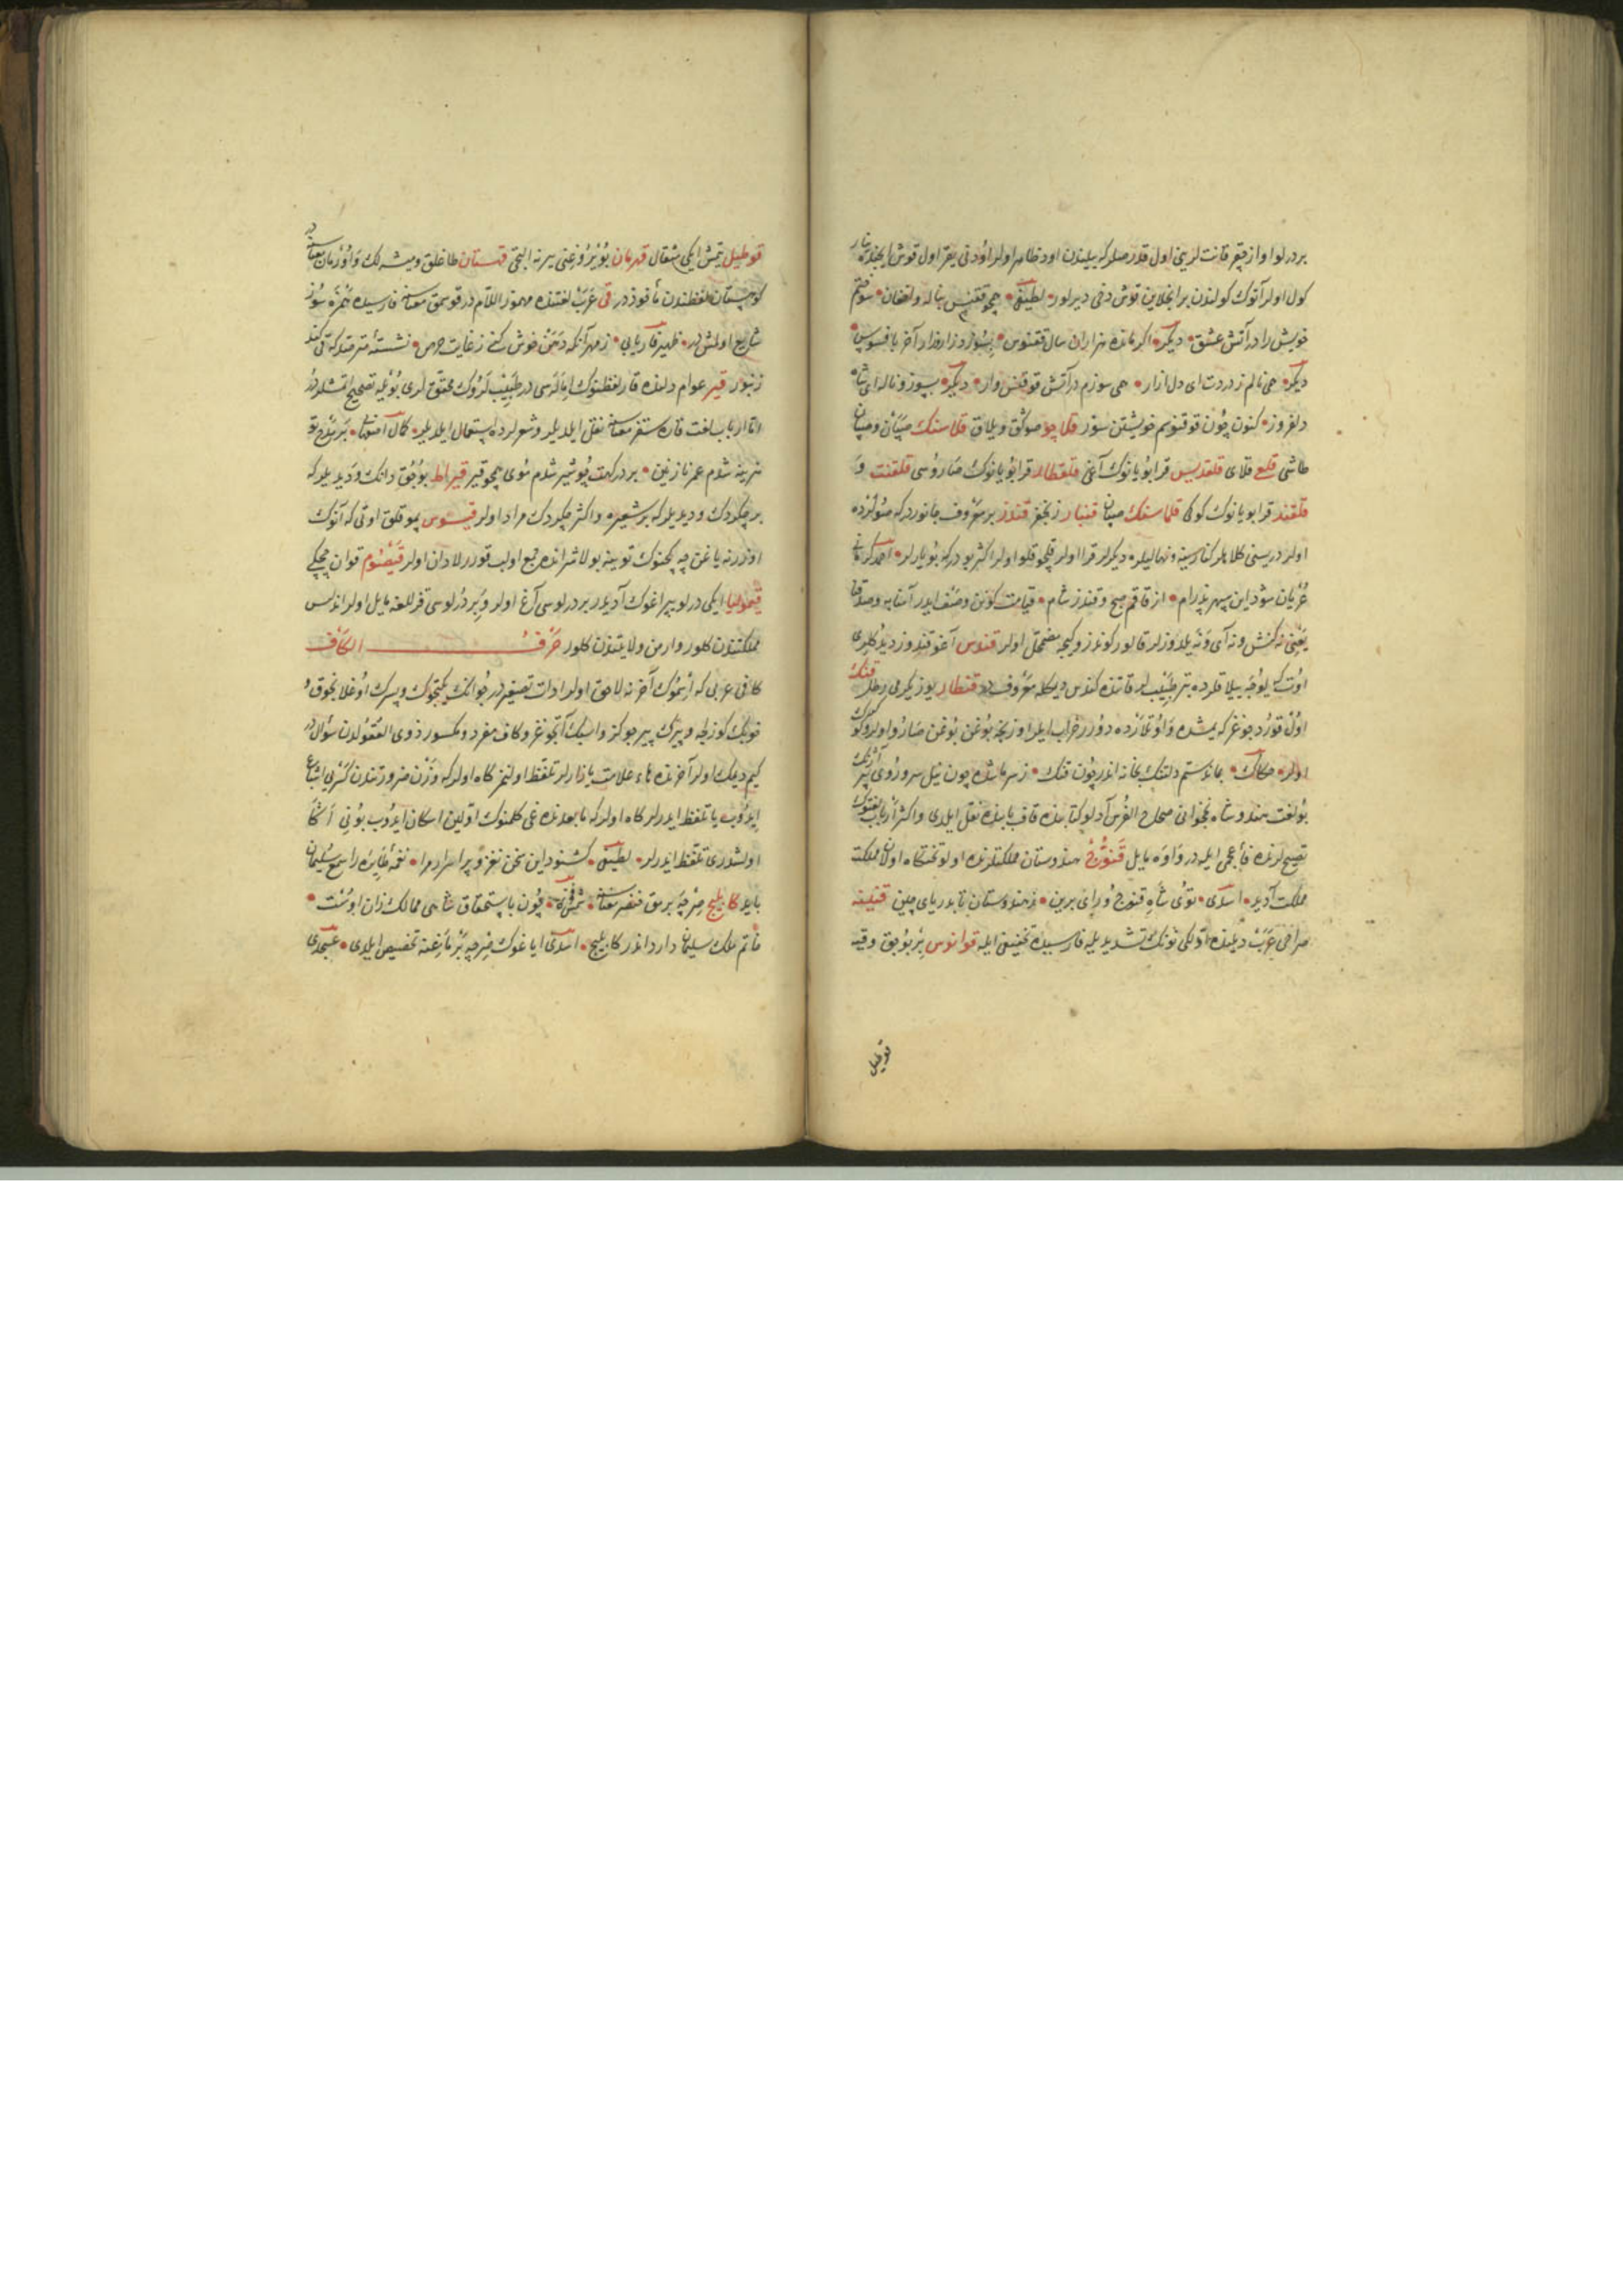 بر درلو اواز چقر قانت لرینی اول قدر صلر که یلندن اود ظاهر اولر اودنی یقر اول قوش ایچنده یانار
کول اولر آنوک کولندن بر انجلاین قوش دخی دیرلور لطیفی همچو ققنس بناله وافغان سوختم
خویش را در آتش عشق دیگر اگر ماند هزاران سال ققنوس بسوزد زار زار آخر بافسوس
دیگر همی نالم ز دردت ای دل ازار همی سوزم در آتش قوقنس وار دیگر بسوز و ناله ای شاه
دلفروز کنون چون قوقنوسم خویشتن سوز قلاچو صوکق و یلاق قلاسنک صپان و صپان
طاشی قلع قلای قلقدیس قرا بویانوک آغی قلقطار قرا بویانوک صاروسی قلقنت و
قلقند قرا بویانوک کوکی قلماسنک صپان قنبار زنجفر قندز بر معروف جانوردر که صولرده
اولر دریسنی کلاهلر کناریسنه و نهالیلره دیکرلر قرا اولر قلچوقلو اولر اکثر بودر که بویارلر احمد کرمانی
عریان شود این سپهر پدرام از قاقم صبح و قندز شام قیامت کونن وصف ایدر آسمانیه وصدقان
یعنی نه کنش و نه آی و نه یلدوزلر قالور کوندز و کیجه مضمحل اولر قندس آغو قندوز دیدکلری
اوت که یلوجه ییلاقلرده بتر طبیبلر قاتنده کندس دیمکله معروفدر قنطار یوز یکرمی رطل قنک
اول قورد جوغز که یمشده و اوتلرده دورر خراب ایلر اوزنجه بوغن بوغن صارو اولر و کوک
اولر حکاک بماند ستم دلتنک بخانه اندر چون قنک ز سر مانده چون نیل سر و روی پر آژنک
بو لغت هندوشاه نخجوانی صحاح الفرس آدلو کتابنده قاف بابنده نقل ایلدی و اکثر ارباب لغتوک
تصیح لرنده فاء عجمی ایله در و او ه یایل قنوج هندوستان مملکتلرنده اولو تختکاه اولان مملکت
مملکت آدیدر اسدی توی شاه قنوج و رای برین ز هندوستان تا بدریای چین قنینه
صراحی عرب دیلنده اولکی نونک تشدیدیله فارسیده تخفیفی ایله قوانوس بر بوجق وقیه
قوطیل
قوطیل یتمش ایکی مثقال قهرمان بویروغنی یرنه التچی قهستان طاغلق و میشه لک و اوزمان معنسنه در
کوهستان لفظندن مأخوذدر قی عرب لغتنده مهموز اللامدر قوسمق معنسنه فارسیده همزه سوز
شایع اولمشدر ظهیر فاریابی ز مهر آنکه دهن خوش کنی ز غایت حرص نشسته مترصد که قی کند
زنبور قیر عوام دلنده قار لفظنوک امالسی در طبیب لروک محقق لری بویله تصحیح اتمشلردر
اتا ارباب لغت قاره سقز معنسنه نقل ایلدیلر و شعرلرده استعمال ایلدیلر کمال اصفهانی
هزینه شدم عمر نازنین بر در کهت چو شیر شدم موی همچو قیر قیراط بوچق دانک و دیدیلر که
بر چکردک و دیدیلر که بر شعیره و اکثر چکردک مراد اولر قیسوس پموقلق اوتی که آنوک
اوزرنه یاغن چه کچنوک توینه بولاشر انده جمع اولب قورر لادان اولر قیصوم قوان چچکی
قیمولیا ایکی درلو بیر اغوک آدیدر بر درلوسی آغ اولر و بر درلوسی قزللغه مایل اولر اندلس
مملکتندن کلور و ارمن ولایتندن کلور حرف الکاف
کاف عربی که اسموک آخرنه لاحق اولر ادات تصغیردر جوانک یکیتجوک و پسرک اوغلانجوق و
خوبک کوزلجه و پیرک پیرجوکز و اسبک آتجوغز و کاف مفرد و مکسور ذوی العقولدن سوالدر
کیم دیمک اولر آخرنده هاء علامت یازارلر تلفظ اولنمز کاه اولر که وزن ضرورتندن کسرنی اشباع
ایدوب یا تلفظ ایدرلر کاه اولر که مابعدنده غی کلمنوک اوّلین اسکان ایدوب بونی اکا
اولشدری تلفظ ایدرلر لطیفی کشنود این سخن نغز و پر اسرار مرا نغمه طایره را سمع سلیمان
باید کابلیج صرچه برمق خنصر معنسنه شمس فخری چون باستحقاق شاهی ممالک زان اوست
خاتم ملک سلیمان دارد اندر کابلیج اسدی ایاغوک صرچه برماغنه تخصیص ایلدی عسجدی